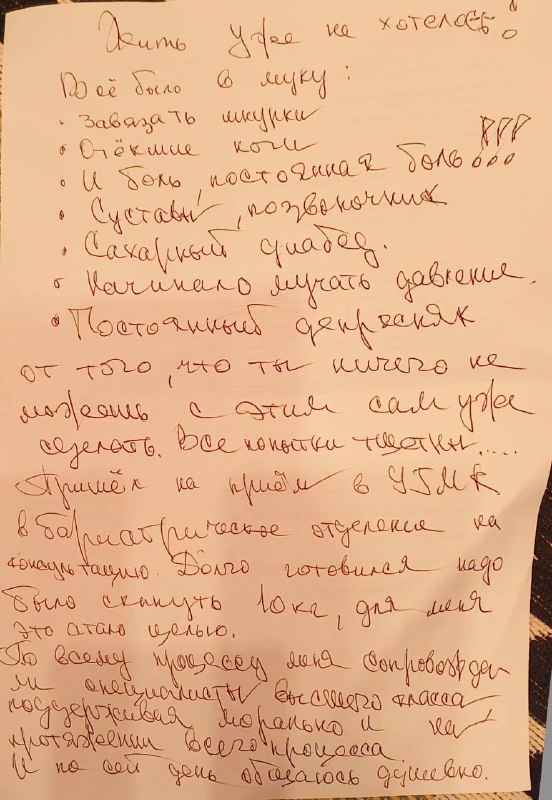 Жить уже не хотелось!
Всё было в муку:
• Завязать шнурки
• Отёкшие ноги
• И боль, постоянная боль!!!
• Суставы, позвоночник
• Сахарный диабед.
• Начинало мучать давление.
• Постоянный депресняк
от того, что ты ничего не
можешь с этим сам уже
сделать. Все попытки тщетны....
Пришёл на приём в УГМК
в бариатрическое отделение на
консультацию. Долго готовился надо
было скинуть 10 кг, для меня
это стало целью.
По всему процессу меня сопровождал
ми специалисты высшего класса
поддерживая морально и на
протяжении всего процесса.
И по сей день общаюсь душевно.